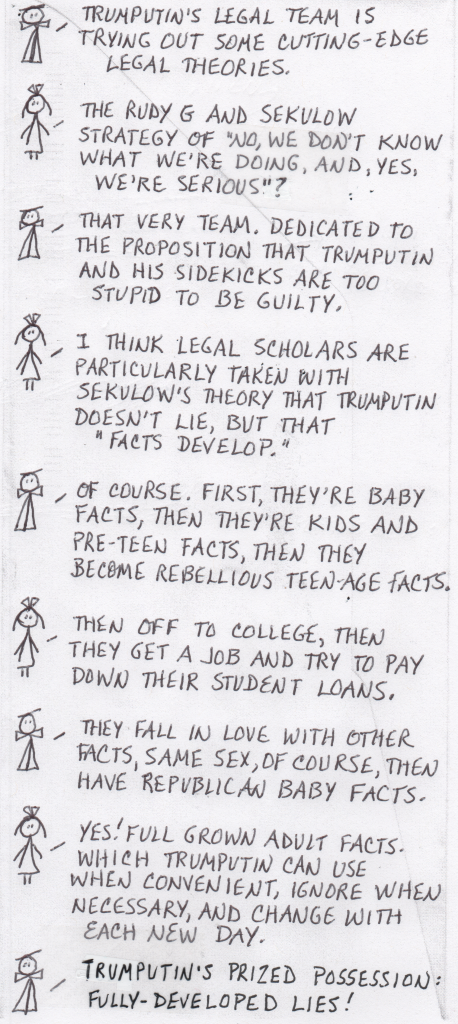 TRUMPUTIN'S LEGAL TEAM IS
TRYING OUT SOME CUTTING-EDGE
LEGAL THEORIES.
THE RUDY G AND SEKULOW
STRATEGY OF "NO, WE DON'T KNOW
WHAT WE'RE DOING, AND, YES,
WE'RE SERIOUS"?
THAT VERY TEAM. DEDICATED TO
THE PROPOSITION THAT TRUMPUTIN
AND HIS SIDEKICKS ARE TOO
STUPID TO BE GUILTY.
I THINK LEGAL SCHOLARS ARE
PARTICULARLY TAKEN WITH
SEKULOW'S THEORY THAT TRUMPUTIN
DOESN'T LIE, BUT THAT
"FACTS DEVELOP."
OF COURSE. FIRST, THEY'RE BABY
FACTS, THEN THEY'RE KIDS AND
PRE-TEEN FACTS, THEN THEY
BECOME REBELLIOUS TEEN-AGE FACTS.
THEN OFF TO COLLEGE, THEN
THEY GET A JOB AND TRY TO PAY
DOWN THEIR STUDENT LOANS.
THEY FALL IN LOVE WITH OTHER
FACTS, SAME SEX, OF COURSE, THEN
HAVE REPUBLICAN BABY FACTS.
YES! FULL GROWN ADULT FACTS.
WHICH TRUMPUTIN CAN USE
WHEN CONVENIENT, IGNORE WHEN
NECESSARY, AND CHANGE WITH
EACH NEW DAY.
TRUMPUTIN'S PRIZED POSSESSION:
FULLY-DEVELOPED LIES!